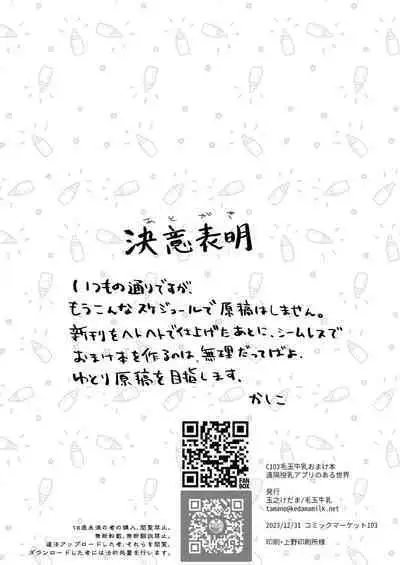 あとがき
決意表明
いつもの通りですが、
もうこんなスケジュールで原稿はしません。
新刊をヘトヘトで仕上げたあとに、シームレスで
おまけ本を作るのは、無理だってばよ。
ゆとり原稿を目指します。
かしこ
FAN
BOX
18歳未満の者の購入、閲覧禁止。
無断転載、無断翻訳禁止。
違法アップロードした者、それらを閲覧、
ダウンロードした者には法的処置を行います。
C103毛玉牛乳おまけ本
遠隔授乳アプリのある世界
発行
玉之けだま/毛玉牛乳
tamano@kedamamilk.net
2023/12/31 コミックマーケット103
印刷・上野印刷所様